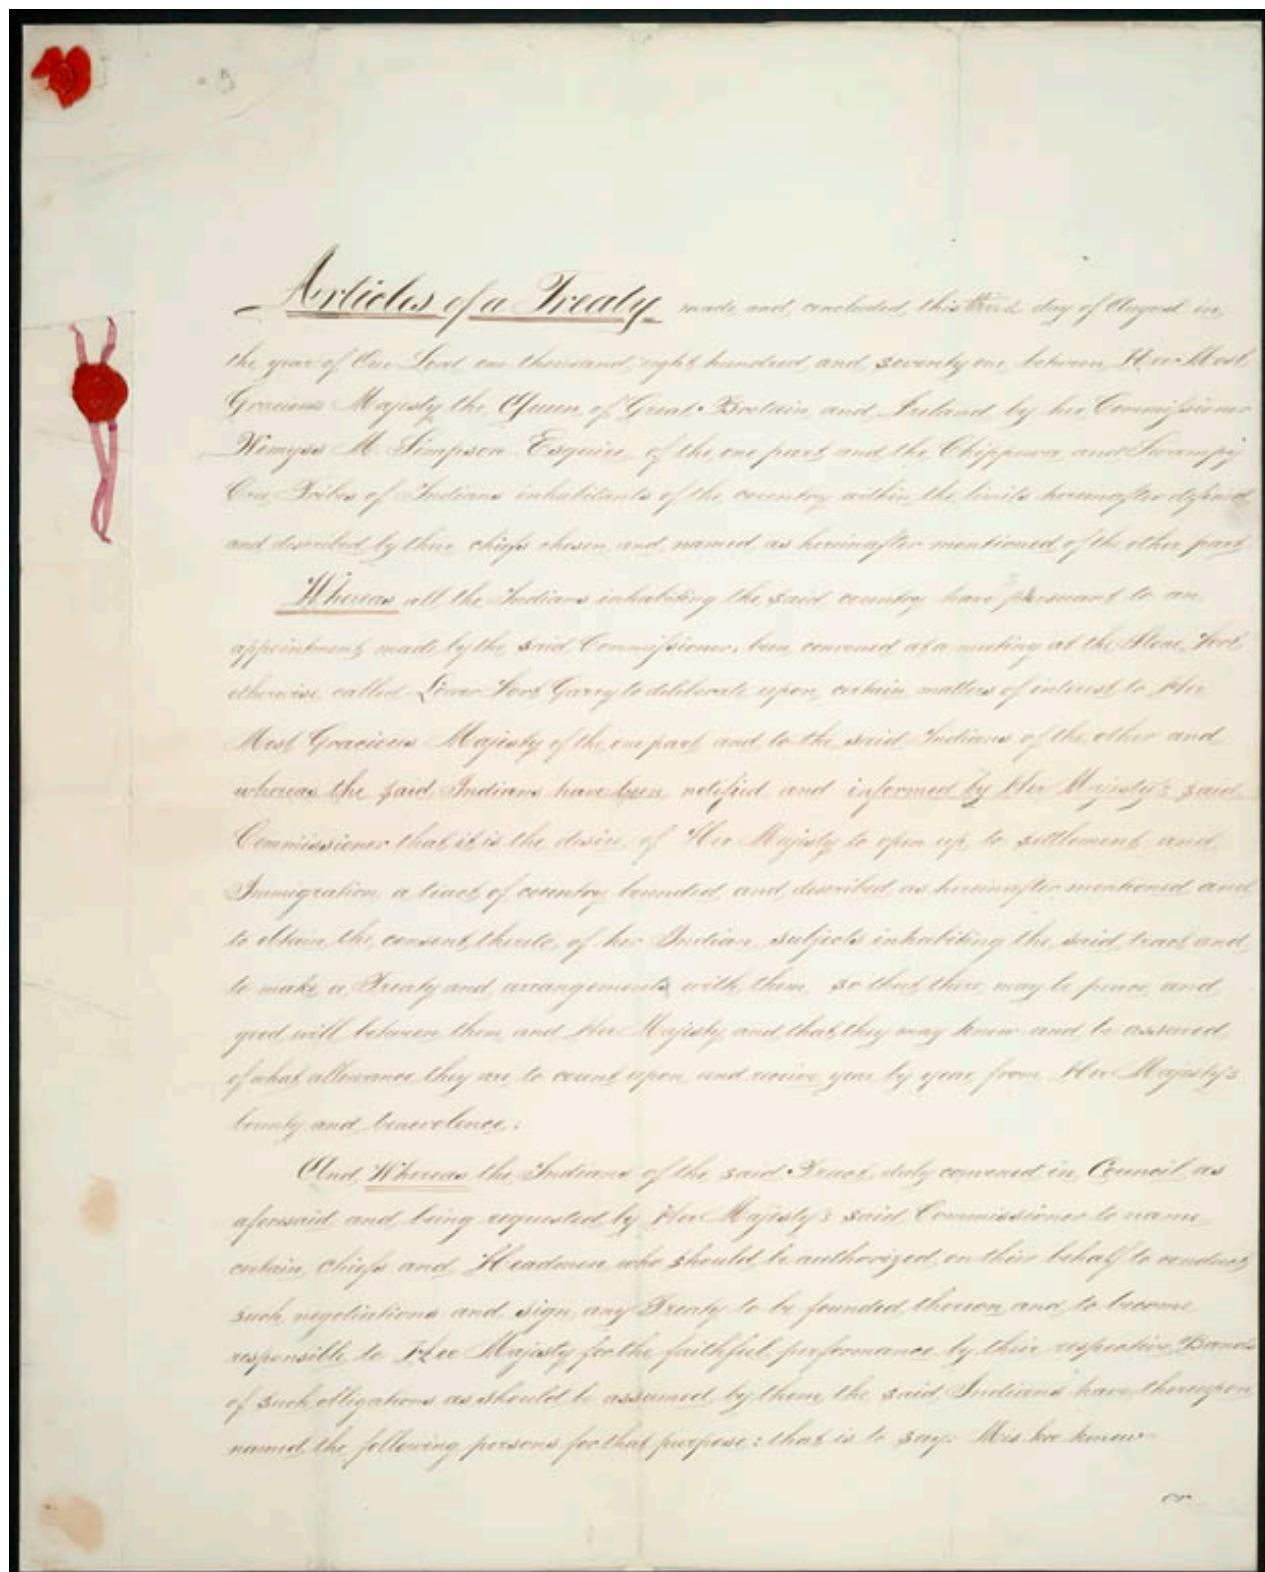 Articles of a Treaty made and concluded this third day of August in
the year of Our Lord one thousand eight hundred and seventy one between Her Most
Gracious Majesty the Queen of Great Britain and Ireland by her Commissioner
Wemyss M. Simpson Esquire of the one part and the Chippewa and Swampy
Cree Tribes of Indians inhabitants of the country within the limits hereinafter defined
and described by their chiefs chosen and named as hereinafter mentioned of the other part
Whereas all the Indians inhabiting the said country have pursuant to an
appointment made by the said Commissioner, been convened at a meeting at the Stone Fort
otherwise called Lower Fort Garry to deliberate upon certain matters of interest to Her
Most Gracious Majesty of the one part and to the said Indians of the other and
whereas the said Indians have been notified and informed by Her Majesty's said
Commissioner that it is the desire of Her Majesty to open up to settlement and
Immigration a tract of country bounded and described as hereinafter mentioned and
to obtain the consent thereto of her Indian subjects inhabiting the said tract and
to make a Treaty and arrangements with them so that there may be peace and
good will between them and Her Majesty and that they may know and be assured
of what allowance they are to count upon and receive year by year from Her Majesty's
bounty and benevolence;
And Whereas the Indians of the said Tract duly convened in Council as
aforesaid and being requested by Her Majesty's said Commissioner to name
certain chiefs and Headmen who should be authorized on their behalf to conduct
such negotiations and sign any Treaty to be founded thereon and to become
responsible to Her Majesty for the faithful performance by their respective Bands
of such obligations as should be assumed by them the said Indians have thereupon
named the following persons for that purpose: that is to say: Mis-koo-kenew
or